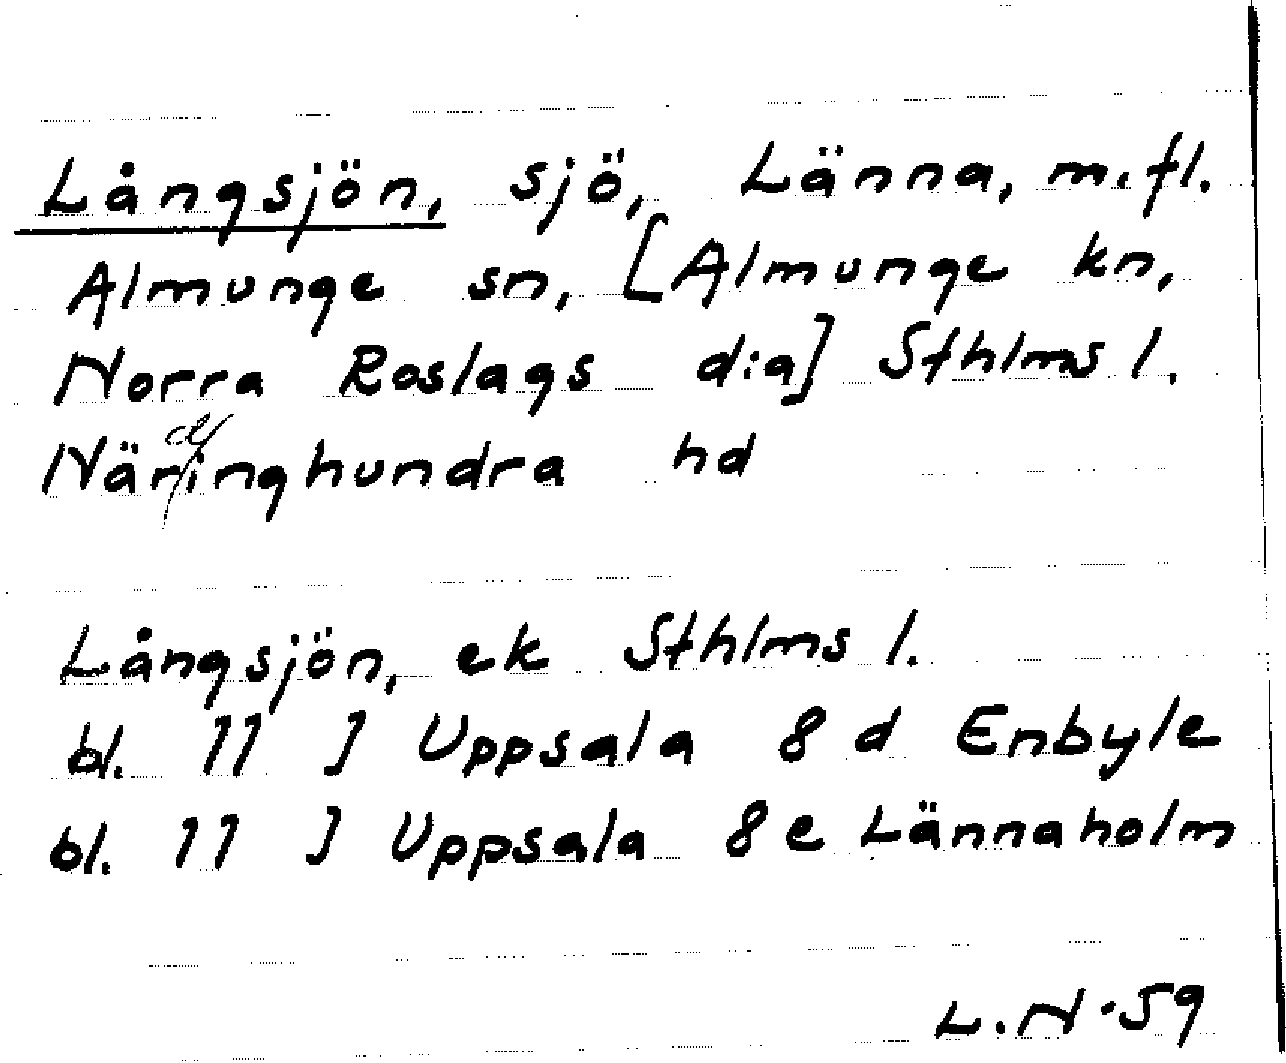 Långsjön, sjö, Länna, m.fl.
Almunge sn, [Almunge kn,
Norra Roslags d:a] Sthlms l.
Närdinghundra hd
Långsjön, ek Sthlms l.
bl. 11 J Uppsala 8 d Enbyle
bl. 11 J Uppsala 8 e Lännaholm
L.N. 59